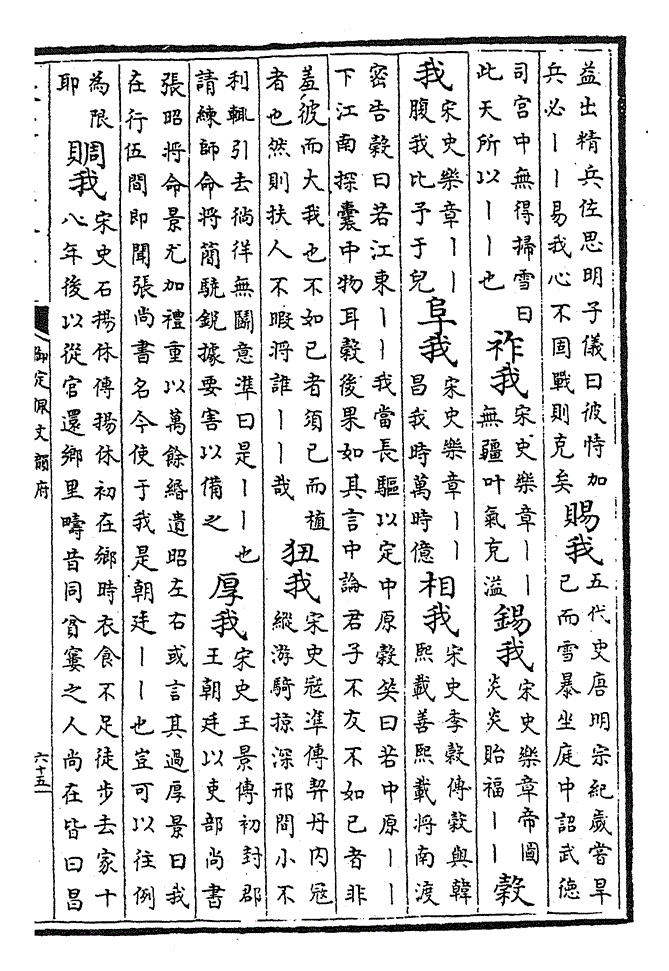 益出精兵佐思明子儀曰彼恃加
兵必丨丨易我心不固戰則克矣
賜我
五代史唐明宗紀歲嘗旱
已而雪暴坐庭中詔武德
司宮中無得掃雪曰
此天所以丨丨也
祚我
宋史樂章丨丨
無疆叶氣充溢
錫我
宋史樂章帝圖
炎炎貽福丨丨
穀
我
宋史樂章丨丨
腹我比予于兒
阜我
宋史樂章丨丨
昌我時萬時億
相我
宋史李穀傳穀與韓
熙載善熙載將南渡
密告穀曰若江東丨丨我當長驅以定中原穀笑曰若中原丨丨
下江南探囊中物耳穀後果如其言中論君子不友不如己者非
羞彼而大我也不如己者須己而植
者也然則扶人不暇將誰丨丨哉
狃我
宋史寇準傳契丹内寇
縱游騎掠深邢間小不
利輒引去徜徉無鬭意準曰是丨丨也
請練師命將簡驍銳據要害以備之
厚我
宋史王景傳初封郡
王朝廷以吏部尚書
張昭將命景尤加禮重以萬餘緡遺昭左右或言其過厚景曰我
在行伍間即聞張尚書名今使于我是朝廷丨丨也豈可以往例
為限
耶
賙我
宋史石揚休傳揚休初在鄉時衣食不足徒步去家十
八年後以從官還鄉里疇昔同貧窶之人尚在皆曰昌
御定佩文韻府
六十五